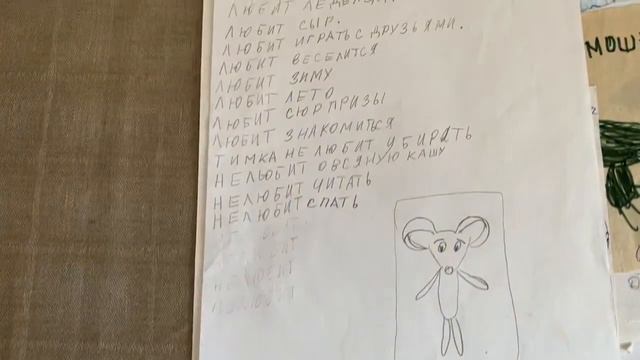 ЛЮБИТ ЛЕДЕНЦЫ
ЛЮБИТ СЫР.
ЛЮБИТ ИГРАТЬ С ДРУЗЬЯМИ.
ЛЮБИТ ВЕСЕЛИТСЯ
ЛЮБИТ ЗИМУ
ЛЮБИТ ЛЕТО
ЛЮБИТ СЮРПРИЗЫ
ЛЮБИТ ЗНАКОМИТЬСЯ
ТИМКА НЕ ЛЮБИТ УБИРАТЬ
НЕЛЬБИТ ОВСЯНУЮ КАШУ
НЕЛЮБИТ ЧИТАТЬ
НЕЛЮБИТ СПАТЬ
НЕЛЮБИТ
НЕЛЮБИТ
МОШ